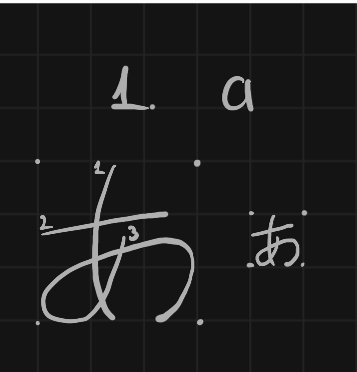 1. a
1
2 3
あ あ